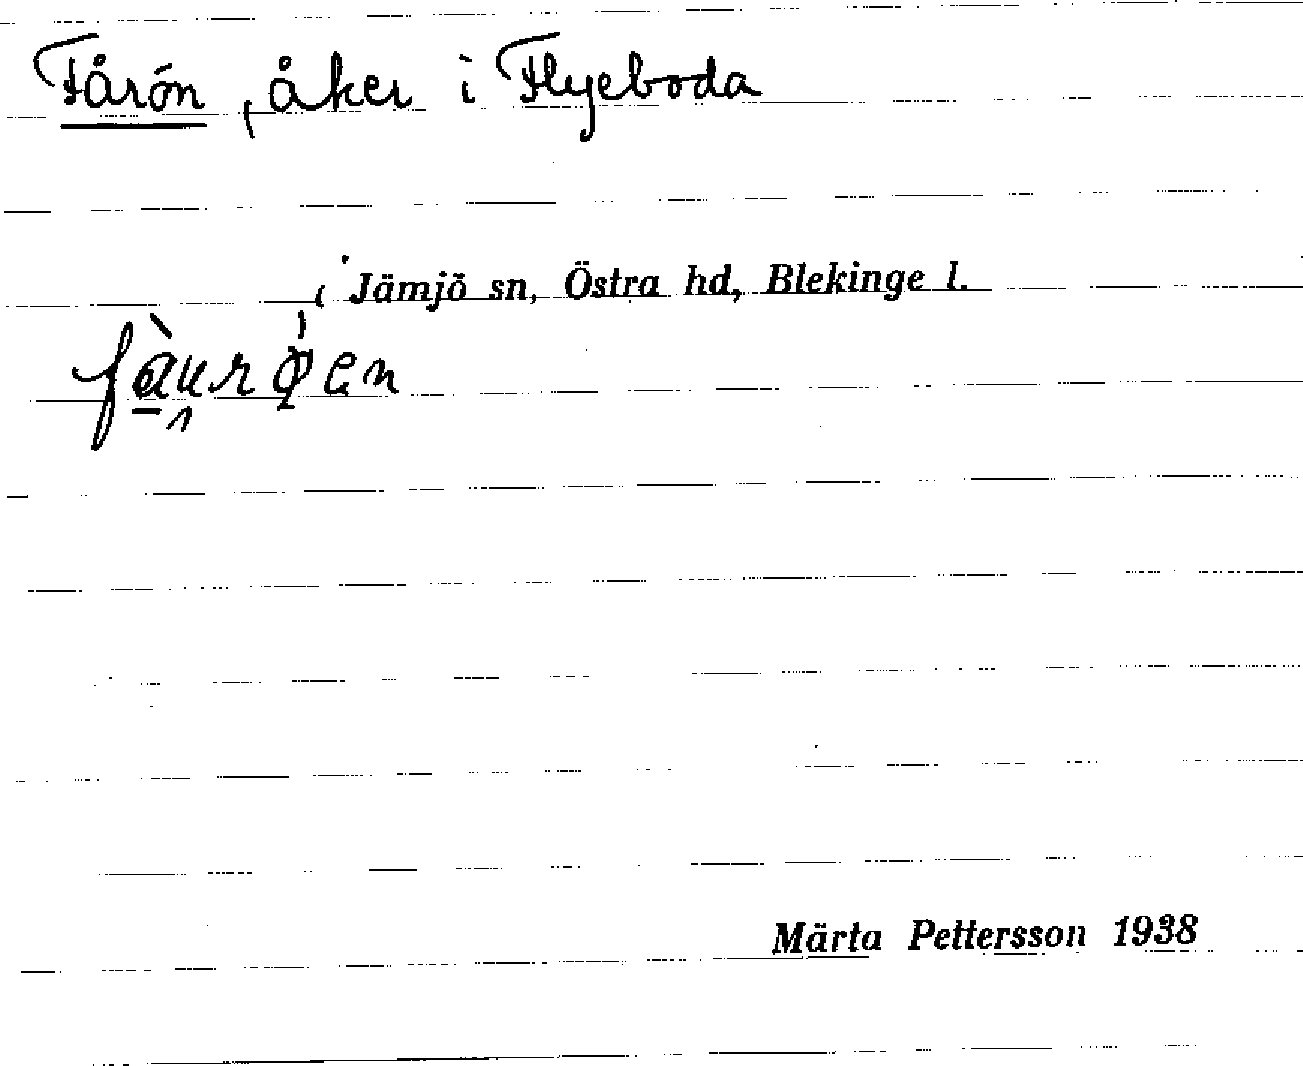 Fårön, åker i Flyeboda
i Jämjö sn, Östra hd, Blekinge l.
fàurøen
Märta Pettersson 1938